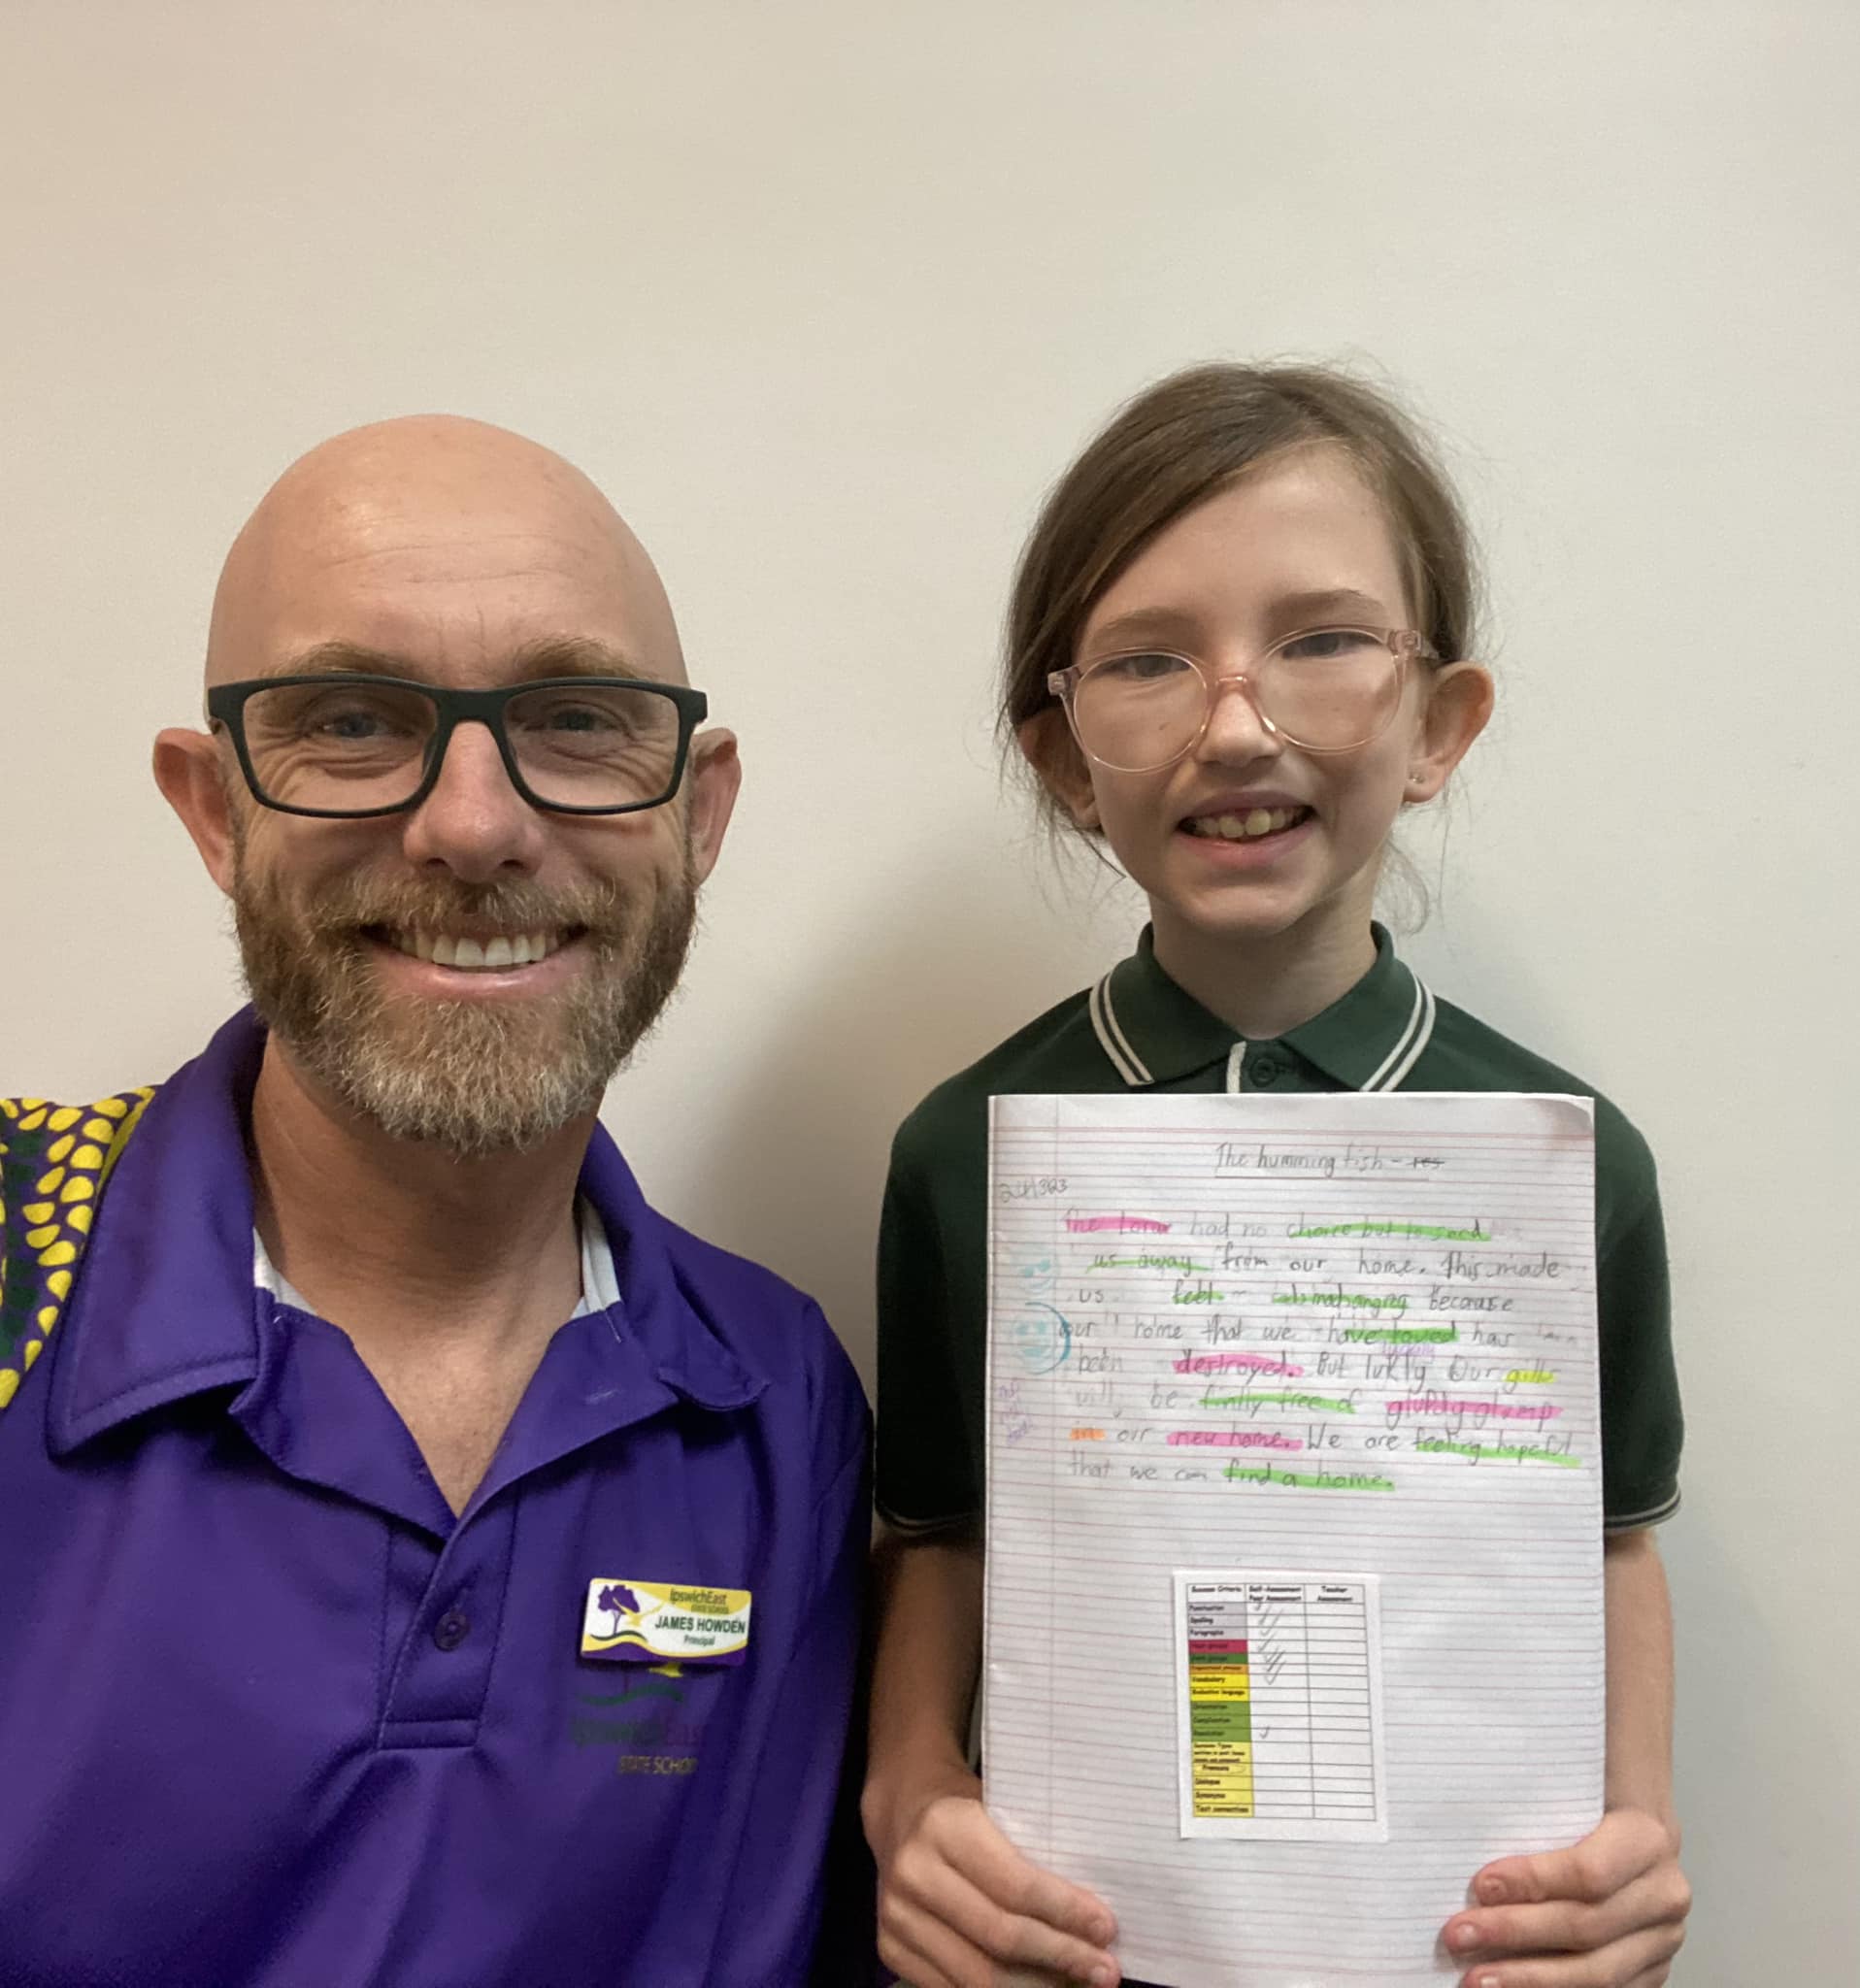 IpswichEast
STATE SCHOOL
JAMES HOWDEN
Principal
STATE SCHOO
The humming fish -
The Lorax had no choice but to send
us away from our home. This made
us feel because
our home that we have loved has
been destroyed. But lukly Our gills
will be finlly free of glump
in our new home. We are feeling hopeful
that we can find a home.
Success Criteria Self-Assessment Teacher
Peer Assessment Assessment
Punctuation
Spelling
Paragraphs
Vocabulary
Evaluative language
Orientation
Complication
Resolution
Pronouns
Dialogue
Synonyms
Text connectives